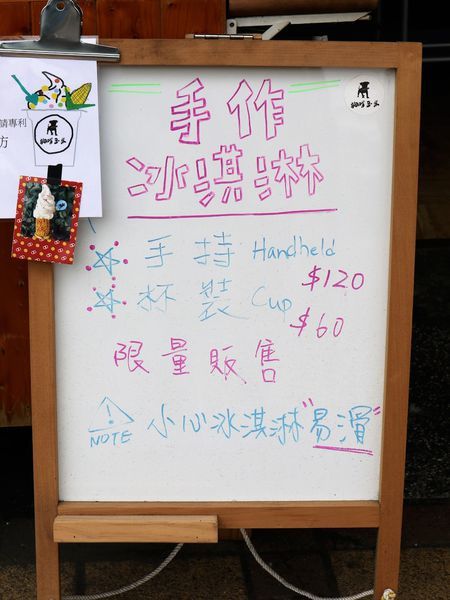 手作
冰淇淋
手持 Handheld
$120
杯裝 Cup
$60
限量販售
NOTE 小心冰淇淋"易滑"
請專利
方